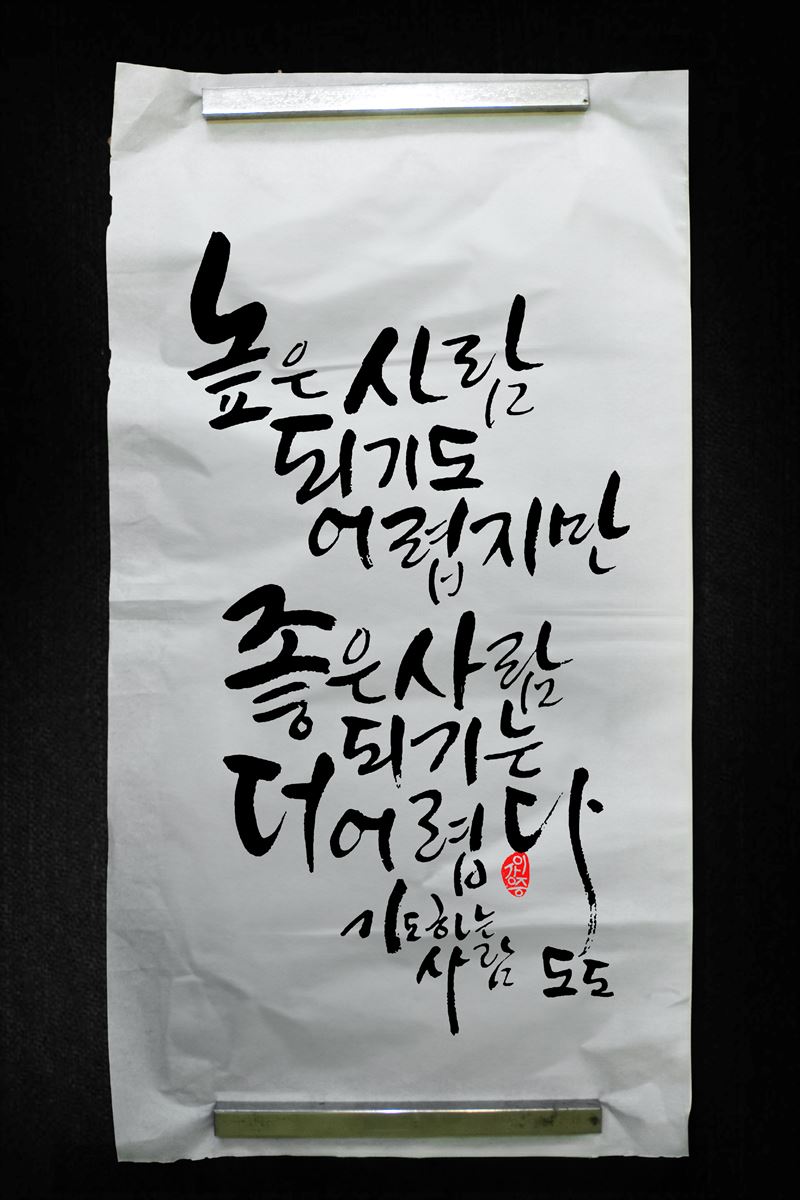 높은 사람
되기도
어렵지만
좋은 사람
되기는
더 어렵다
기도하는
사람 도도